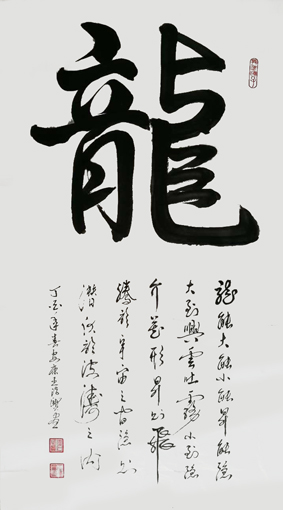 龍
龍能大能小能昇能隱
大則興雲吐霧小則隱
介藏形昇則飛
騰於宇宙之間隱則
潛伏於波濤之內
丁亥年春安康